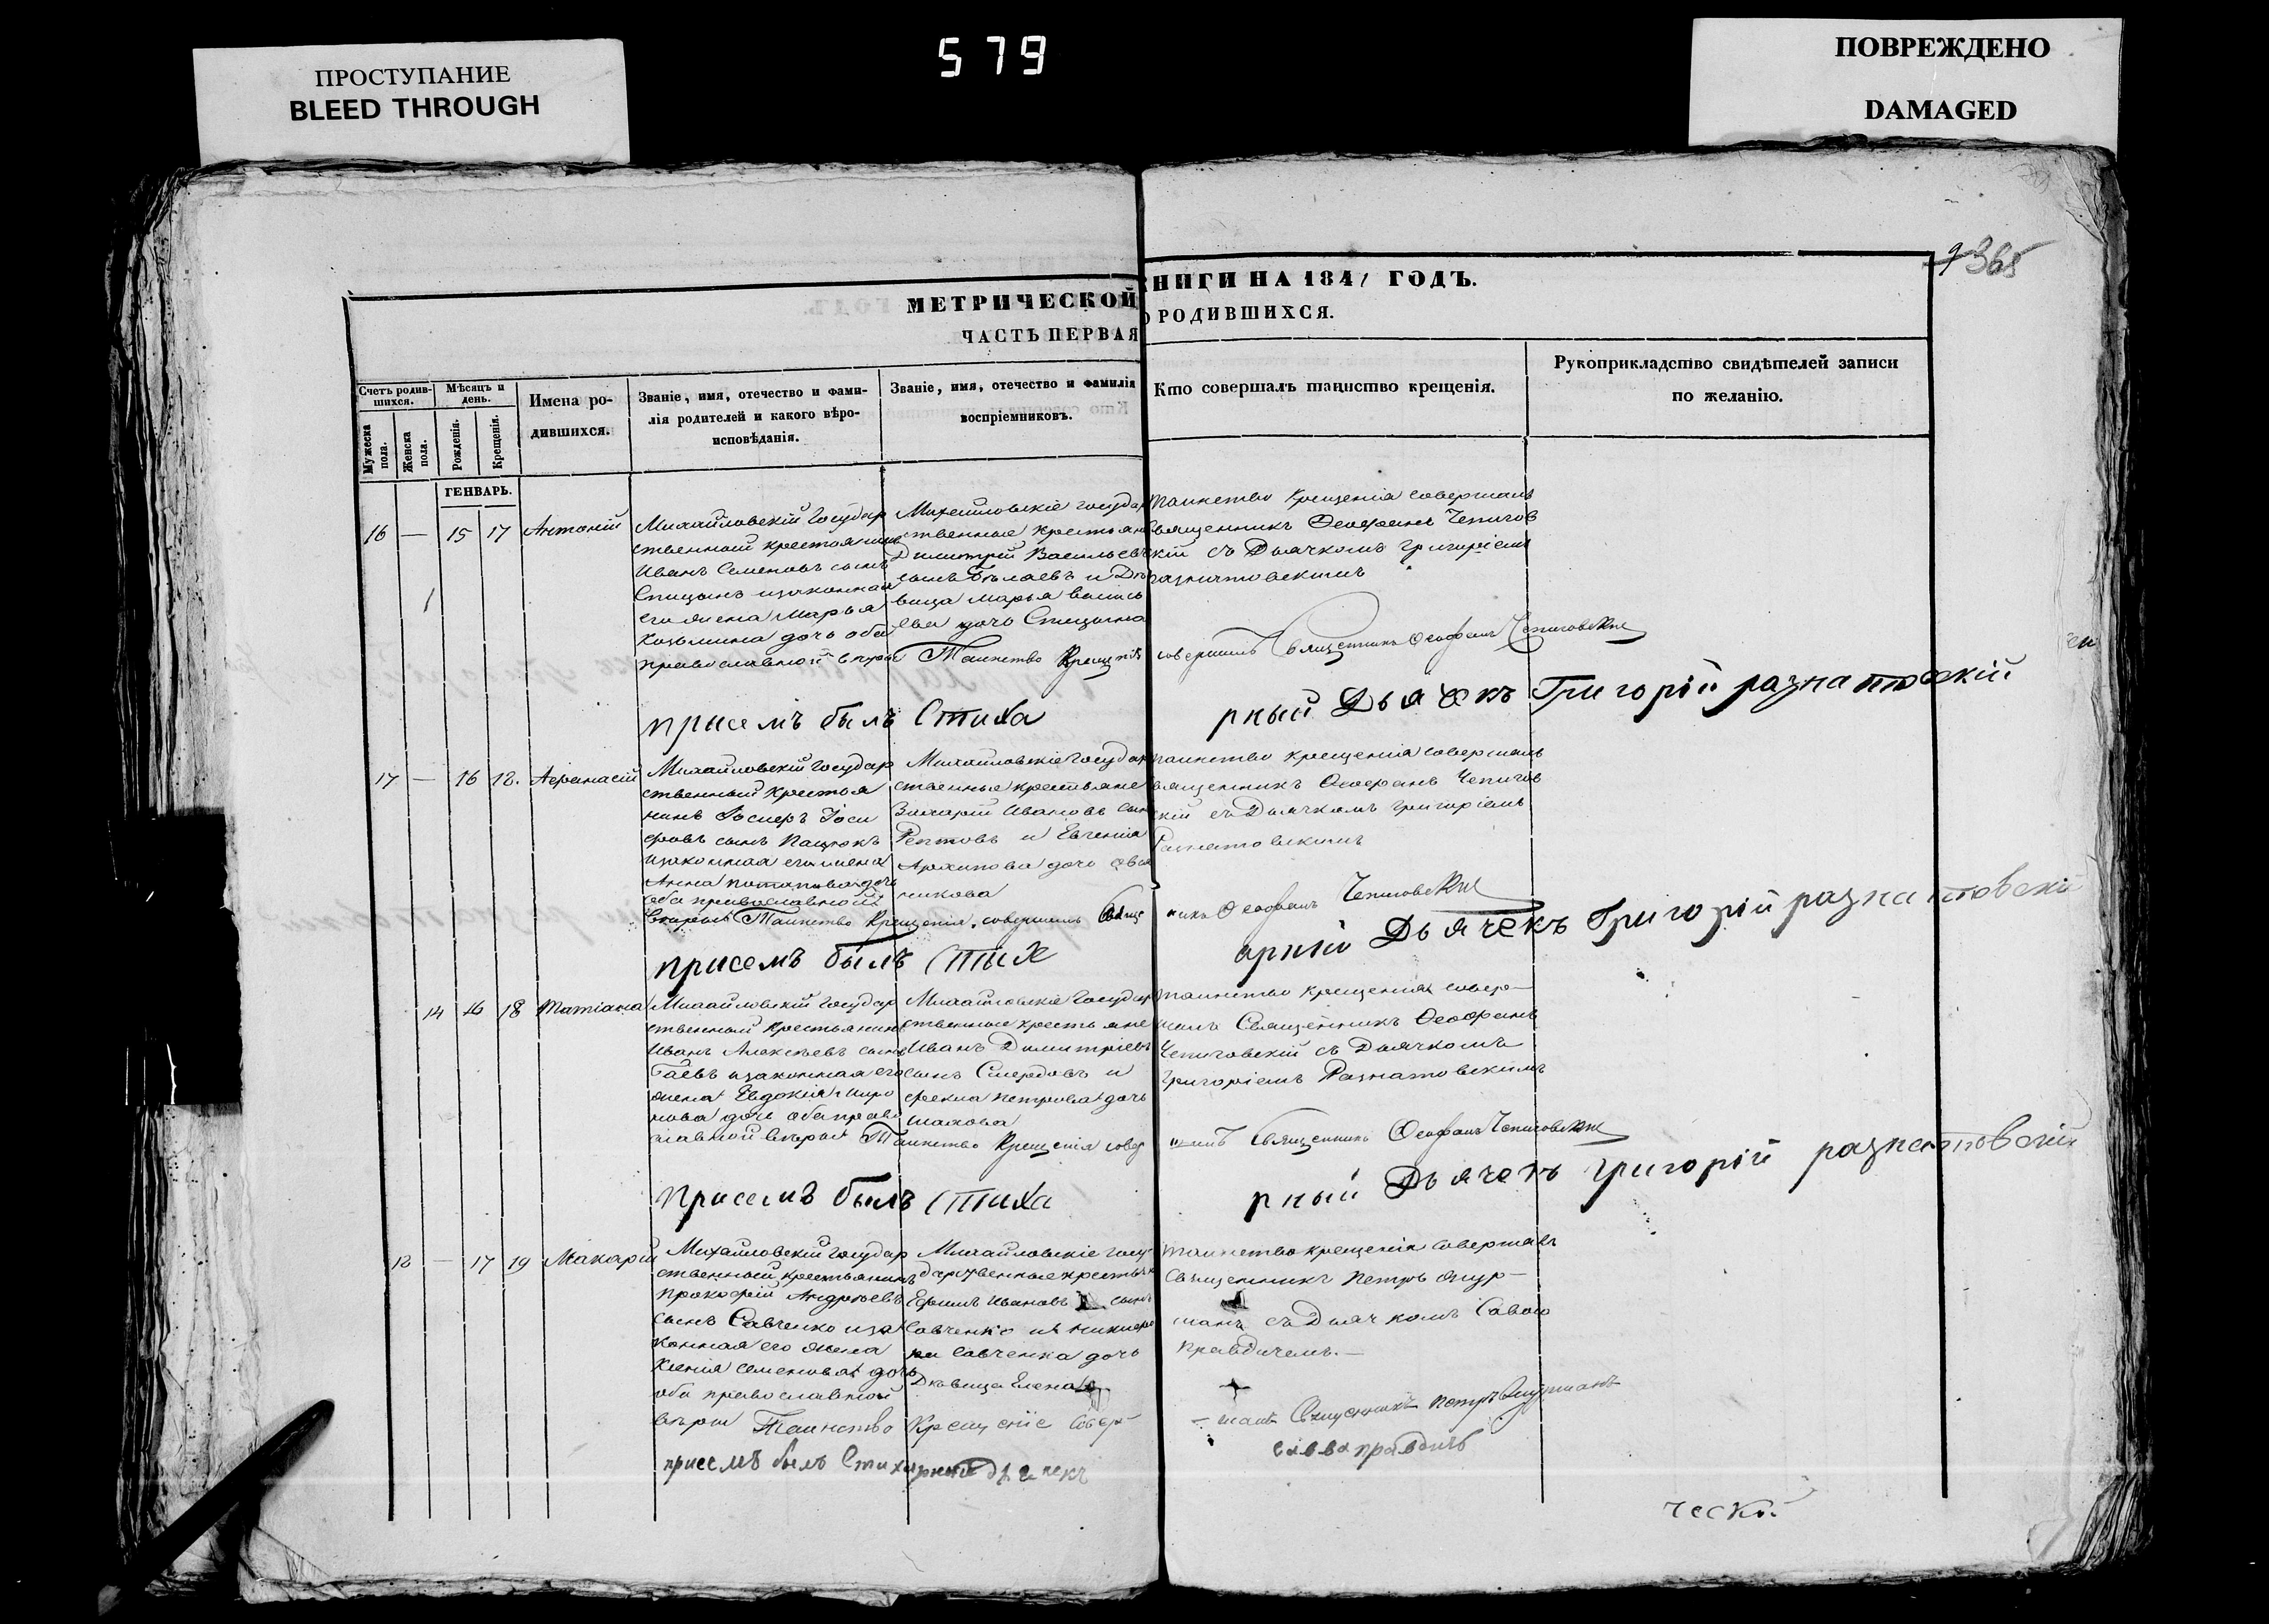 ПРОСТУПАНИЕ
BLEED THROUGH
579
ПОВРЕЖДЕНО
DAMAGED
365
МЕТРИЧЕСКОЙ КНИГИ НА 1841 ГОДЪ.
ЧАСТЬ ПЕРВАЯ О РОДИВШИХСЯ.
Счетъ родив-
шихся.
Мужеска
пола.
Женска
пола.
Мѣсяцъ и
день.
Рожденія.
Крещенія.
Имена ро-
дившихся.
Званіе, имя, отечество и фами-
лія родителей и какого вѣро-
исповѣданія.
Званіе, имя, отечество и фамилія
воспріемниковъ.
Кто совершалъ таинство крещенія.
Рукоприкладство свидѣтелей записи
по желанію.
ГЕНВАРЬ.
16 — 15 17 Антоній
Михайловскій Государ
ственный крестьянинъ
Иванъ Семеновъ сынъ
Спицынъ изаконная
его жена Марья
Козьмина дочь оба
православной вѣры
Михайловскіе государ
ственные крестьяне
Димитрій Васильевъ
сынъ Бѣлаевъ и Дѣ
вица Марья
ева дочь Спицына
таинство Крещенія совершалъ
Священникъ Ѳеофанъ Чепигов
скій съ Дьячкомъ Григоріемъ
Разнатовскимъ
Таинство Крещенія совершилъ Священникъ Ѳеофанъ Чепиговскій
присемъ былъ Стихарный Дьячекъ Григорій разнатовскій
17 — 16 18. Афанасій
Михайловскій Государ
ственный Крестья
нинъ Іосифъ Іоси
фовъ сынъ Пацюкъ
изаконная его жена
Анна потапова дочь
оба православной
вѣры
Михайловскіе Государ
ственные крестьяне
Захарій Ивановъ сынъ
Рептовъ и Евгенія
Архипова дочь
никова
таинство крещенія совершалъ
священникъ Ѳеофанъ Чепигов
скій съ Дьячкомъ Григоріемъ
Разнатовскимъ
Таинство Крещенія совершилъ Священникъ Ѳеофанъ Чепиговскій
присемъ былъ Стихарный Дьячекъ Григорій разнатовскій
14 16 18 Татіана
Михайловскій Государ
ственный Крестьянинъ
Иванъ Алексѣевъ сынъ
Гаевъ изаконная его
жена Евдокія Миро
нова дочь оба право
славной вѣры
Михайловскіе Государ
ственные крестьяне
Иванъ Димитріевъ
сынъ Смердовъ и
Фекла петрова дочь
таинство крещенія совер—
шалъ Священникъ Ѳеофанъ
Чепиговскій съ Дьячкомъ
Григоріемъ Разнатовскимъ
Таинство Крещенія совершилъ Священникъ Ѳеофанъ Чепиговскій
присемъ былъ Стихарный Дьячекъ Григорій разнатовскій
18 — 17 19 Макарій
Михайловскій Государ
ственный крестьянинъ
Прокофій Андреевъ
сынъ Савченко изак
конная его жена
Ксенія Семенова дочь
оба православной
вѣры
Михайловскіе Госу
дарственные крестьяне
Ефимъ Ивановъ сынъ
Савченко и
Савченка дочь
Дѣвица Елена
таинство крещенія совершалъ
Священникъ Петръ
съ Дьячкомъ Савою
Правдичемъ.—
Таинство Крещеніе Совер—
—шалъ Священникъ Петръ
присемъ былъ Стихарный дьячекъ
Савва правдичъ
ческой